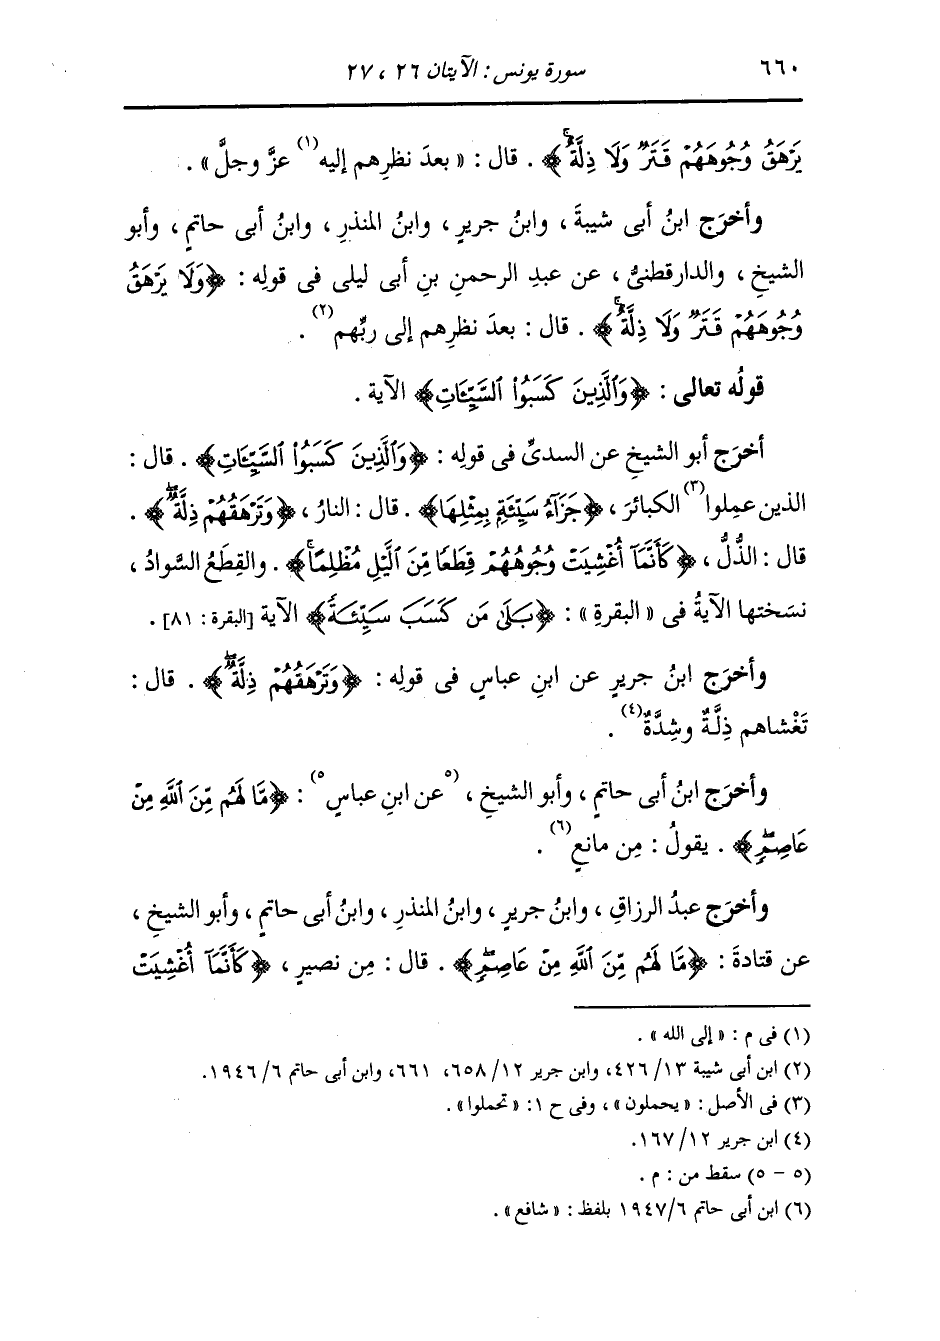 ٦٦٠ سورة يونس : الآيتان ٢٦ ، ٢٧
يَرْهَقُ وُجُوهَهُمْ قَتَرٌ وَلَا ذِلَّةٌ ﴾ . قال : « بعدَ نظرِهم إليه(١) عزَّ وجلَّ » .
وأخرَج ابنُ أبى شيبةَ ، وابنُ جريرٍ ، وابنُ المنذرِ ، وابنُ أبى حاتمٍ ، وأبو
الشيخِ ، والدارقطنىُّ ، عن عبدِ الرحمنِ بنِ أبى ليلى فى قولِه : ﴿ وَلَا يَرْهَقُ
وُجُوهَهُمْ قَتَرٌ وَلَا ذِلَّةٌ ﴾ . قال : بعدَ نظرِهم إلى ربِّهم(٢) .
قولُه تعالى : ﴿ وَٱلَّذِينَ كَسَبُوا۟ ٱلسَّيِّـَٔاتِ ﴾ الآية .
أخرَج أبو الشيخِ عن السدىِّ فى قولِه : ﴿ وَٱلَّذِينَ كَسَبُوا۟ ٱلسَّيِّـَٔاتِ ﴾ . قال :
الذين عمِلوا(٣) الكبائرَ ، ﴿ جَزَآءُ سَيِّئَةٍۭ بِمِثْلِهَا ﴾ . قال : النارُ ، ﴿ وَتَرْهَقُهُمْ ذِلَّةٌ ﴾ .
قال : الذُّلُّ ، ﴿ كَأَنَّمَآ أُغْشِيَتْ وُجُوهُهُمْ قِطَعًا مِّنَ ٱلَّيْلِ مُظْلِمًا ﴾ . والقِطَعُ السَّوادُ ،
نسَختها الآيةُ فى « البقرةِ » : ﴿ بَلَىٰ مَن كَسَبَ سَيِّئَةً ﴾ الآية [البقرة : ٨١] .
وأخرَج ابنُ جريرٍ عن ابنِ عباسٍ فى قولِه : ﴿ وَتَرْهَقُهُمْ ذِلَّةٌ ﴾ . قال :
تَغْشاهم ذِلَّةٌ وشِدَّةٌ(٤) .
وأخرَج ابنُ أبى حاتمٍ ، وأبو الشيخِ ، (٥عن ابنِ عباسٍ٥) : ﴿ مَّا لَهُم مِّنَ ٱللَّهِ مِنْ
عَاصِمٍ ﴾ . يقولُ : مِن مانعٍ(٦) .
وأخرَج عبدُ الرزاقِ ، وابنُ جريرٍ ، وابنُ المنذرِ ، وابنُ أبى حاتمٍ ، وأبو الشيخِ ،
عن قتادةَ : ﴿ مَّا لَهُم مِّنَ ٱللَّهِ مِنْ عَاصِمٍ ﴾ . قال : مِن نصيرٍ ، ﴿ كَأَنَّمَآ أُغْشِيَتْ
(١) فى م : « إلى الله » .
(٢) ابن أبى شيبة ١٣/ ٤٢٦، وابن جرير ١٢/ ٦٥٨، ٦٦١، وابن أبى حاتم ٦/ ١٩٤٦.
(٣) فى الأصل : « يحملون » ، وفى ح ١: « تحملوا » .
(٤) ابن جرير ١٢/ ١٦٧.
(٥ – ٥) سقط من : م .
(٦) ابن أبى حاتم ٦/ ١٩٤٧ بلفظ : « شافع » .